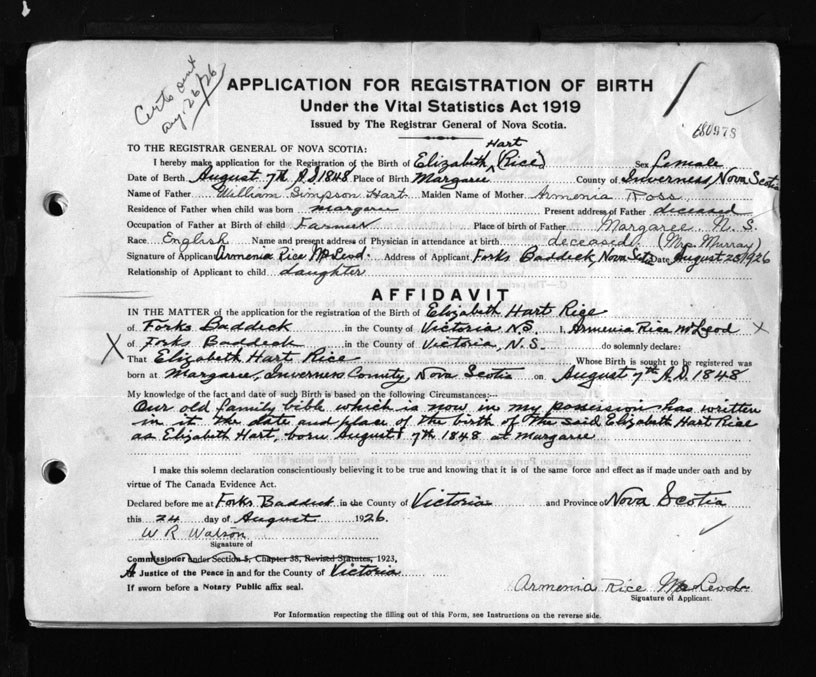 Certs out
Aug. 26/26
APPLICATION FOR REGISTRATION OF BIRTH
Under the Vital Statistics Act 1919
Issued by The Registrar General of Nova Scotia.
680978
TO THE REGISTRAR GENERAL OF NOVA SCOTIA:
Hart
I hereby make application for the Registration of the Birth of Elizabeth (Rice) Sex Female
Date of Birth August 7th A.D. 1848 Place of Birth Margaree County of Inverness, Nova Scotia
Name of Father William Simpson Hart Maiden Name of Mother Armenia Ross
Residence of Father when child was born Margaree Present address of Father diceased
Occupation of Father at Birth of child Farmer Place of birth of Father Margaree N. S.
Race English Name and present address of Physician in attendance at birth deceased. (Mrs Murray)
Signature of Applicant Armenia Rice McLeod. Address of Applicant Forks Baddeck, Nova Scotia Date August 25/1926
Relationship of Applicant to child daughter
AFFIDAVIT
IN THE MATTER of the application for the registration of the Birth of Elizabeth Hart Rice
of Forks Baddeck in the County of Victoria N.S. I, Armenia Rice McLeod X
of Forks Baddeck in the County of Victoria, N.S. do solemnly declare:
X That Elizabeth Hart Rice Whose Birth is sought to be registered was
born at Margaree, Inverness County, Nova Scotia on August 7th A.D. 1848
My knowledge of the fact and date of such Birth is based on the following Circumstances:—
Our old family bible which is now in my possession has written
in it the date and place of the birth of the said Elizabeth Hart Rice
as Elizabeth Hart, born August 7th 1848 at Margaree
I make this solemn declaration conscientiously believing it to be true and knowing that it is of the same force and effect as if made under oath and by
virtue of The Canada Evidence Act.
Declared before me at Forks Baddeck in the County of Victoria and Province of Nova Scotia
this 24 day of August 1926.
W R Watson
Signature of
Commissioner under Section 5, Chapter 38, Revised Statutes, 1923,
A Justice of the Peace in and for the County of Victoria
If sworn before a Notary Public affix seal.
Armenia Rice McLeod.
Signature of Applicant.
For Information respecting the filling out of this Form, see Instructions on the reverse side.